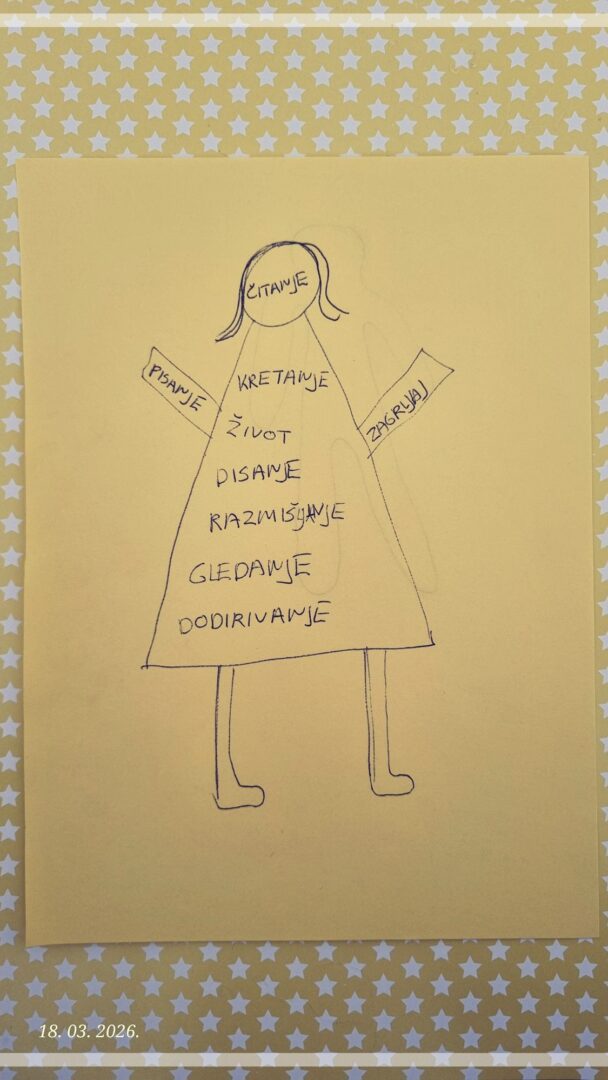 ČITANJE
PISANJE
KRETANJE
ZAGRLJAJ
ŽIVOT
DISANJE
RAZMIŠLJANJE
GLEDANJE
DODIRIVANJE
18. 03. 2026.